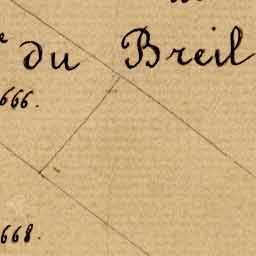 du Breil
666.
668.